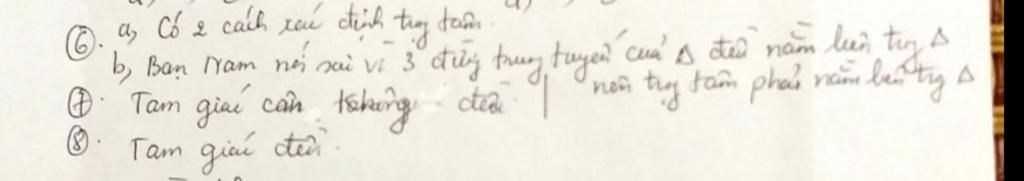 ⑥. a, Có 2 cách xác định trg tâm.
b, Bạn Nam nói sai vì 3 đường trung tuyến của Δ đều nằm bên trg Δ
nên trg tâm phải nằm bên trg Δ
⑦. Tam giác cân không đều.
⑧. Tam giác đều.